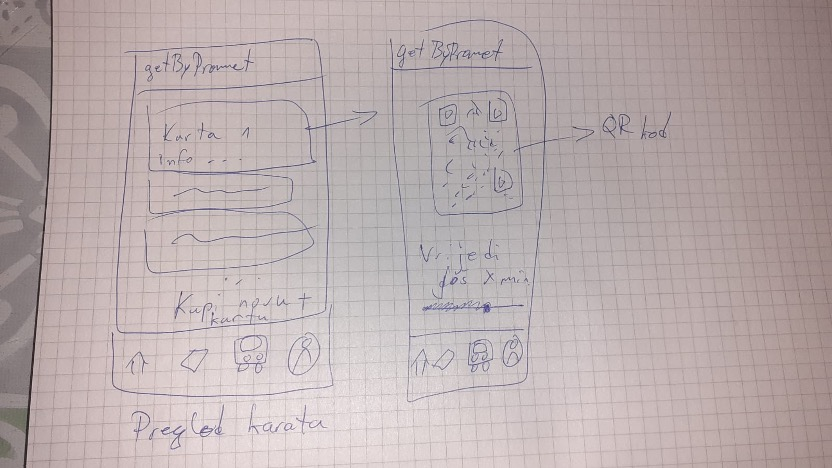 getByPromet
Karta 1
info ...
Kupi novu +
kartu
Pregled karata
getByPromet
QR kod
Vrijedi
još X min